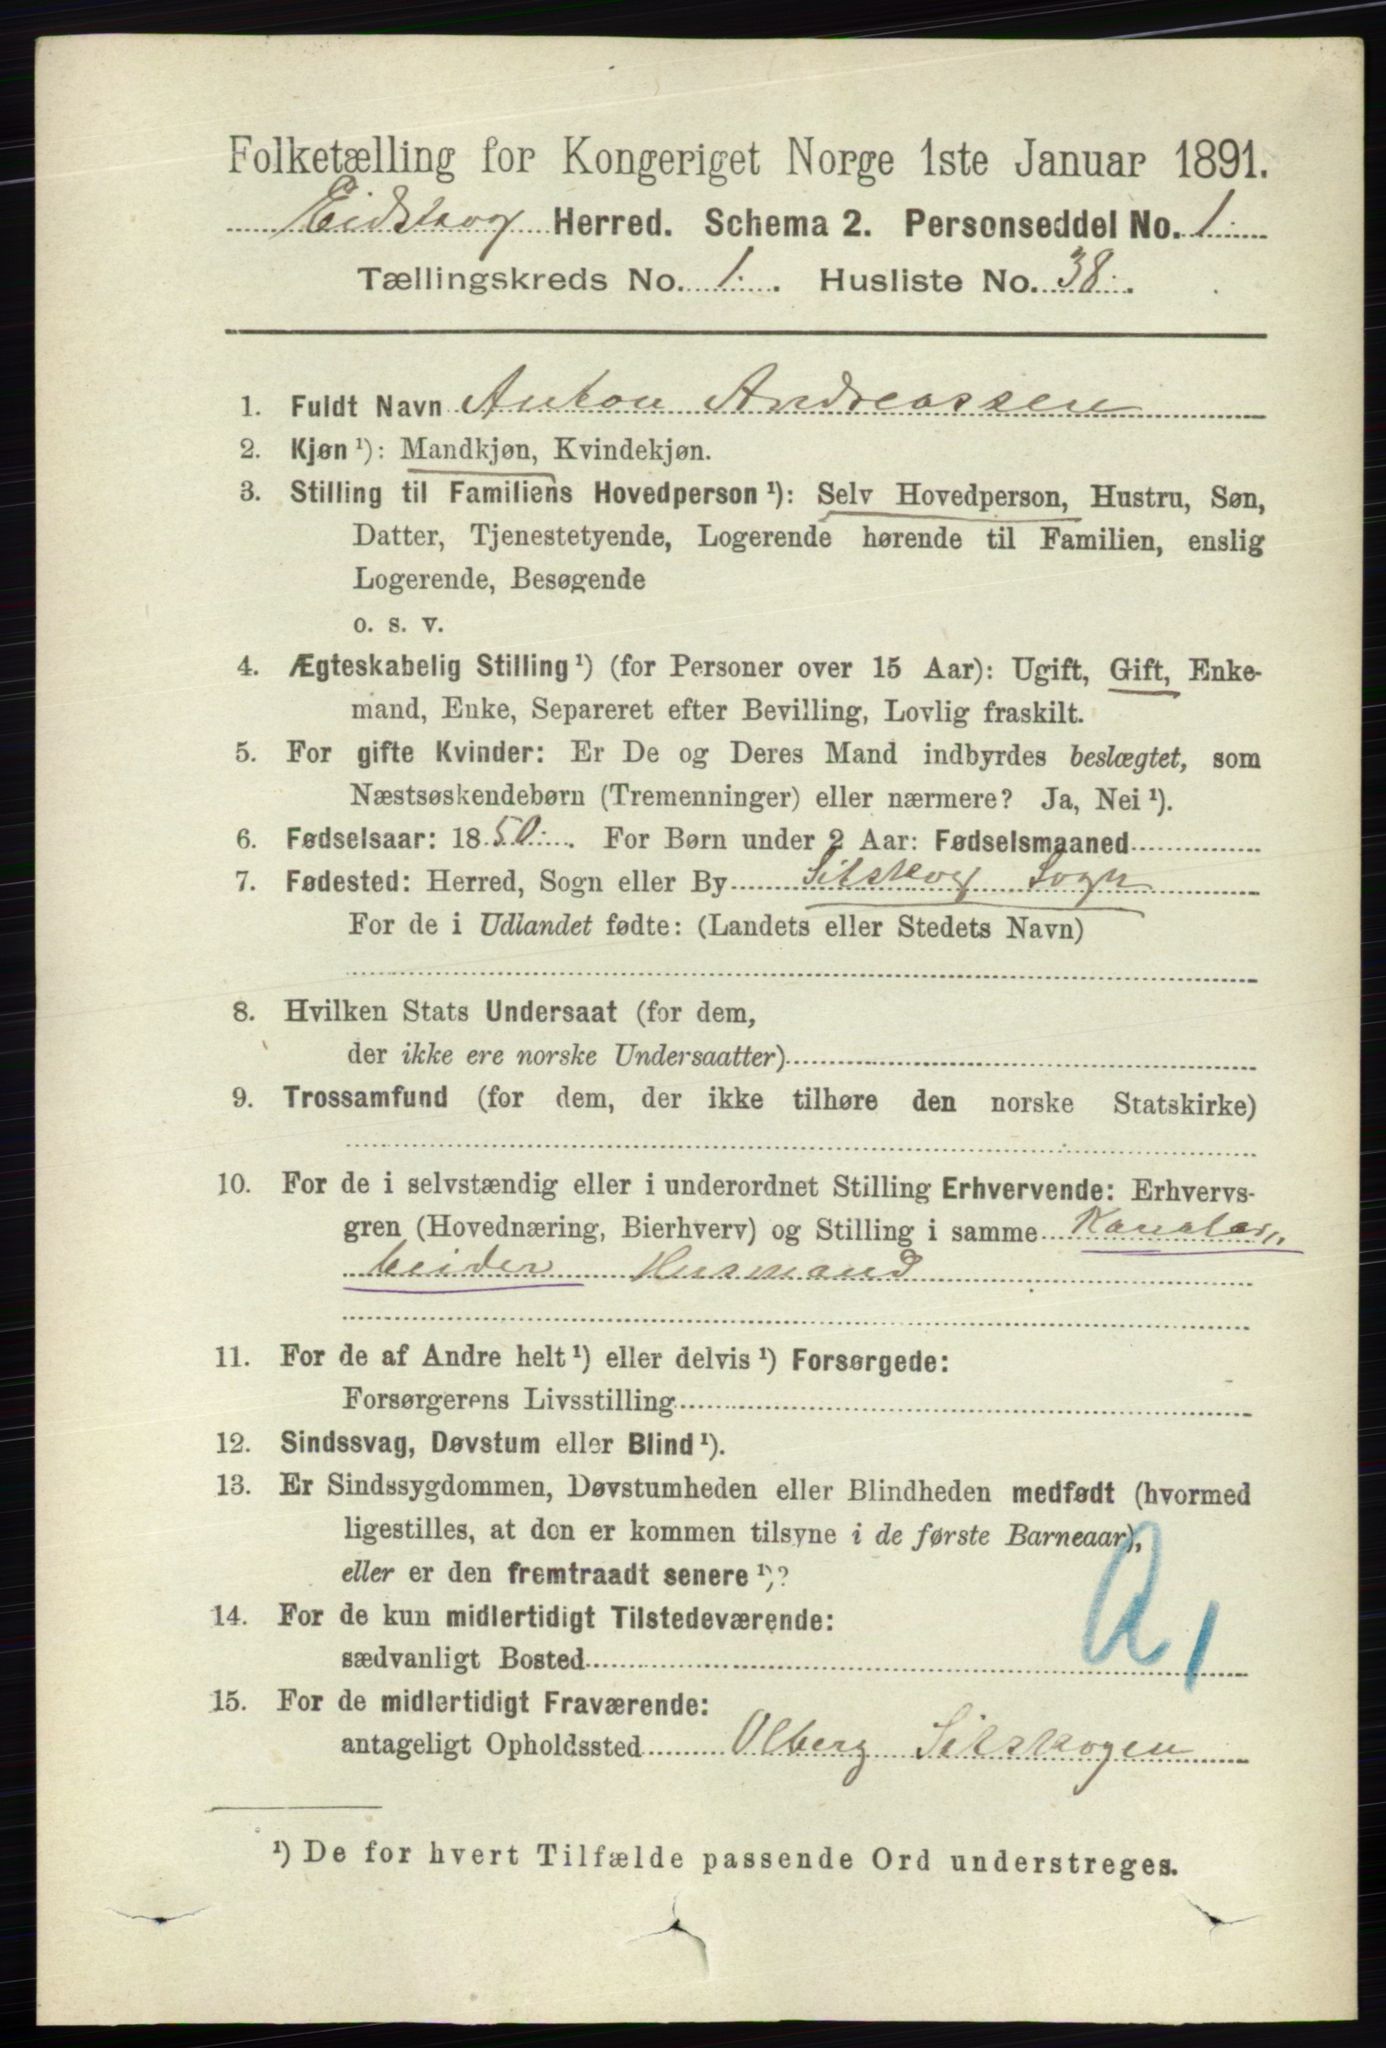 Folketælling for Kongeriget Norge 1ste Januar 1891.
Eidskog Herred. Schema 2. Personseddel No. 1.
Tællingskreds No. 1. Husliste No. 38.
1. Fuldt Navn Anton Andreassen
2. Kjøn ¹): Mandkjøn, Kvindekjøn.
3. Stilling til Familiens Hovedperson ¹): Selv Hovedperson, Hustru, Søn,
Datter, Tjenestetyende, Logerende hørende til Familien, enslig
Logerende, Besøgende
o. s. v.
4. Ægteskabelig Stilling ¹) (for Personer over 15 Aar): Ugift, Gift, Enke-
mand, Enke, Separeret efter Bevilling, Lovlig fraskilt.
5. For gifte Kvinder: Er De og Deres Mand indbyrdes beslægtet, som
Næstsøskendebørn (Tremenninger) eller nærmere? Ja, Nei ¹).
6. Fødselsaar: 1850. For Børn under 2 Aar: Fødselsmaaned
7. Fødested: Herred, Sogn eller By Sitskog Sogn
For de i Udlandet fødte: (Landets eller Stedets Navn)
8. Hvilken Stats Undersaat (for dem,
der ikke ere norske Undersaatter)
9. Trossamfund (for dem, der ikke tilhøre den norske Statskirke)
10. For de i selvstændig eller i underordnet Stilling Erhvervende: Erhvervs-
gren (Hovednæring, Bierhverv) og Stilling i samme Kanalar,,
beider Husmand
11. For de af Andre helt ¹) eller delvis ¹) Forsørgede:
Forsørgerens Livsstilling
12. Sindssvag, Døvstum eller Blind ¹).
13. Er Sindssygdommen, Døvstumheden eller Blindheden medfødt (hvormed
ligestilles, at den er kommen tilsyne i de første Barneaar),
eller er den fremtraadt senere ¹)?
14. For de kun midlertidigt Tilstedeværende:
sædvanligt Bosted
15. For de midlertidigt Fraværende:
antageligt Opholdssted Olberg Sitskogen
¹) De for hvert Tilfælde passende Ord understreges.